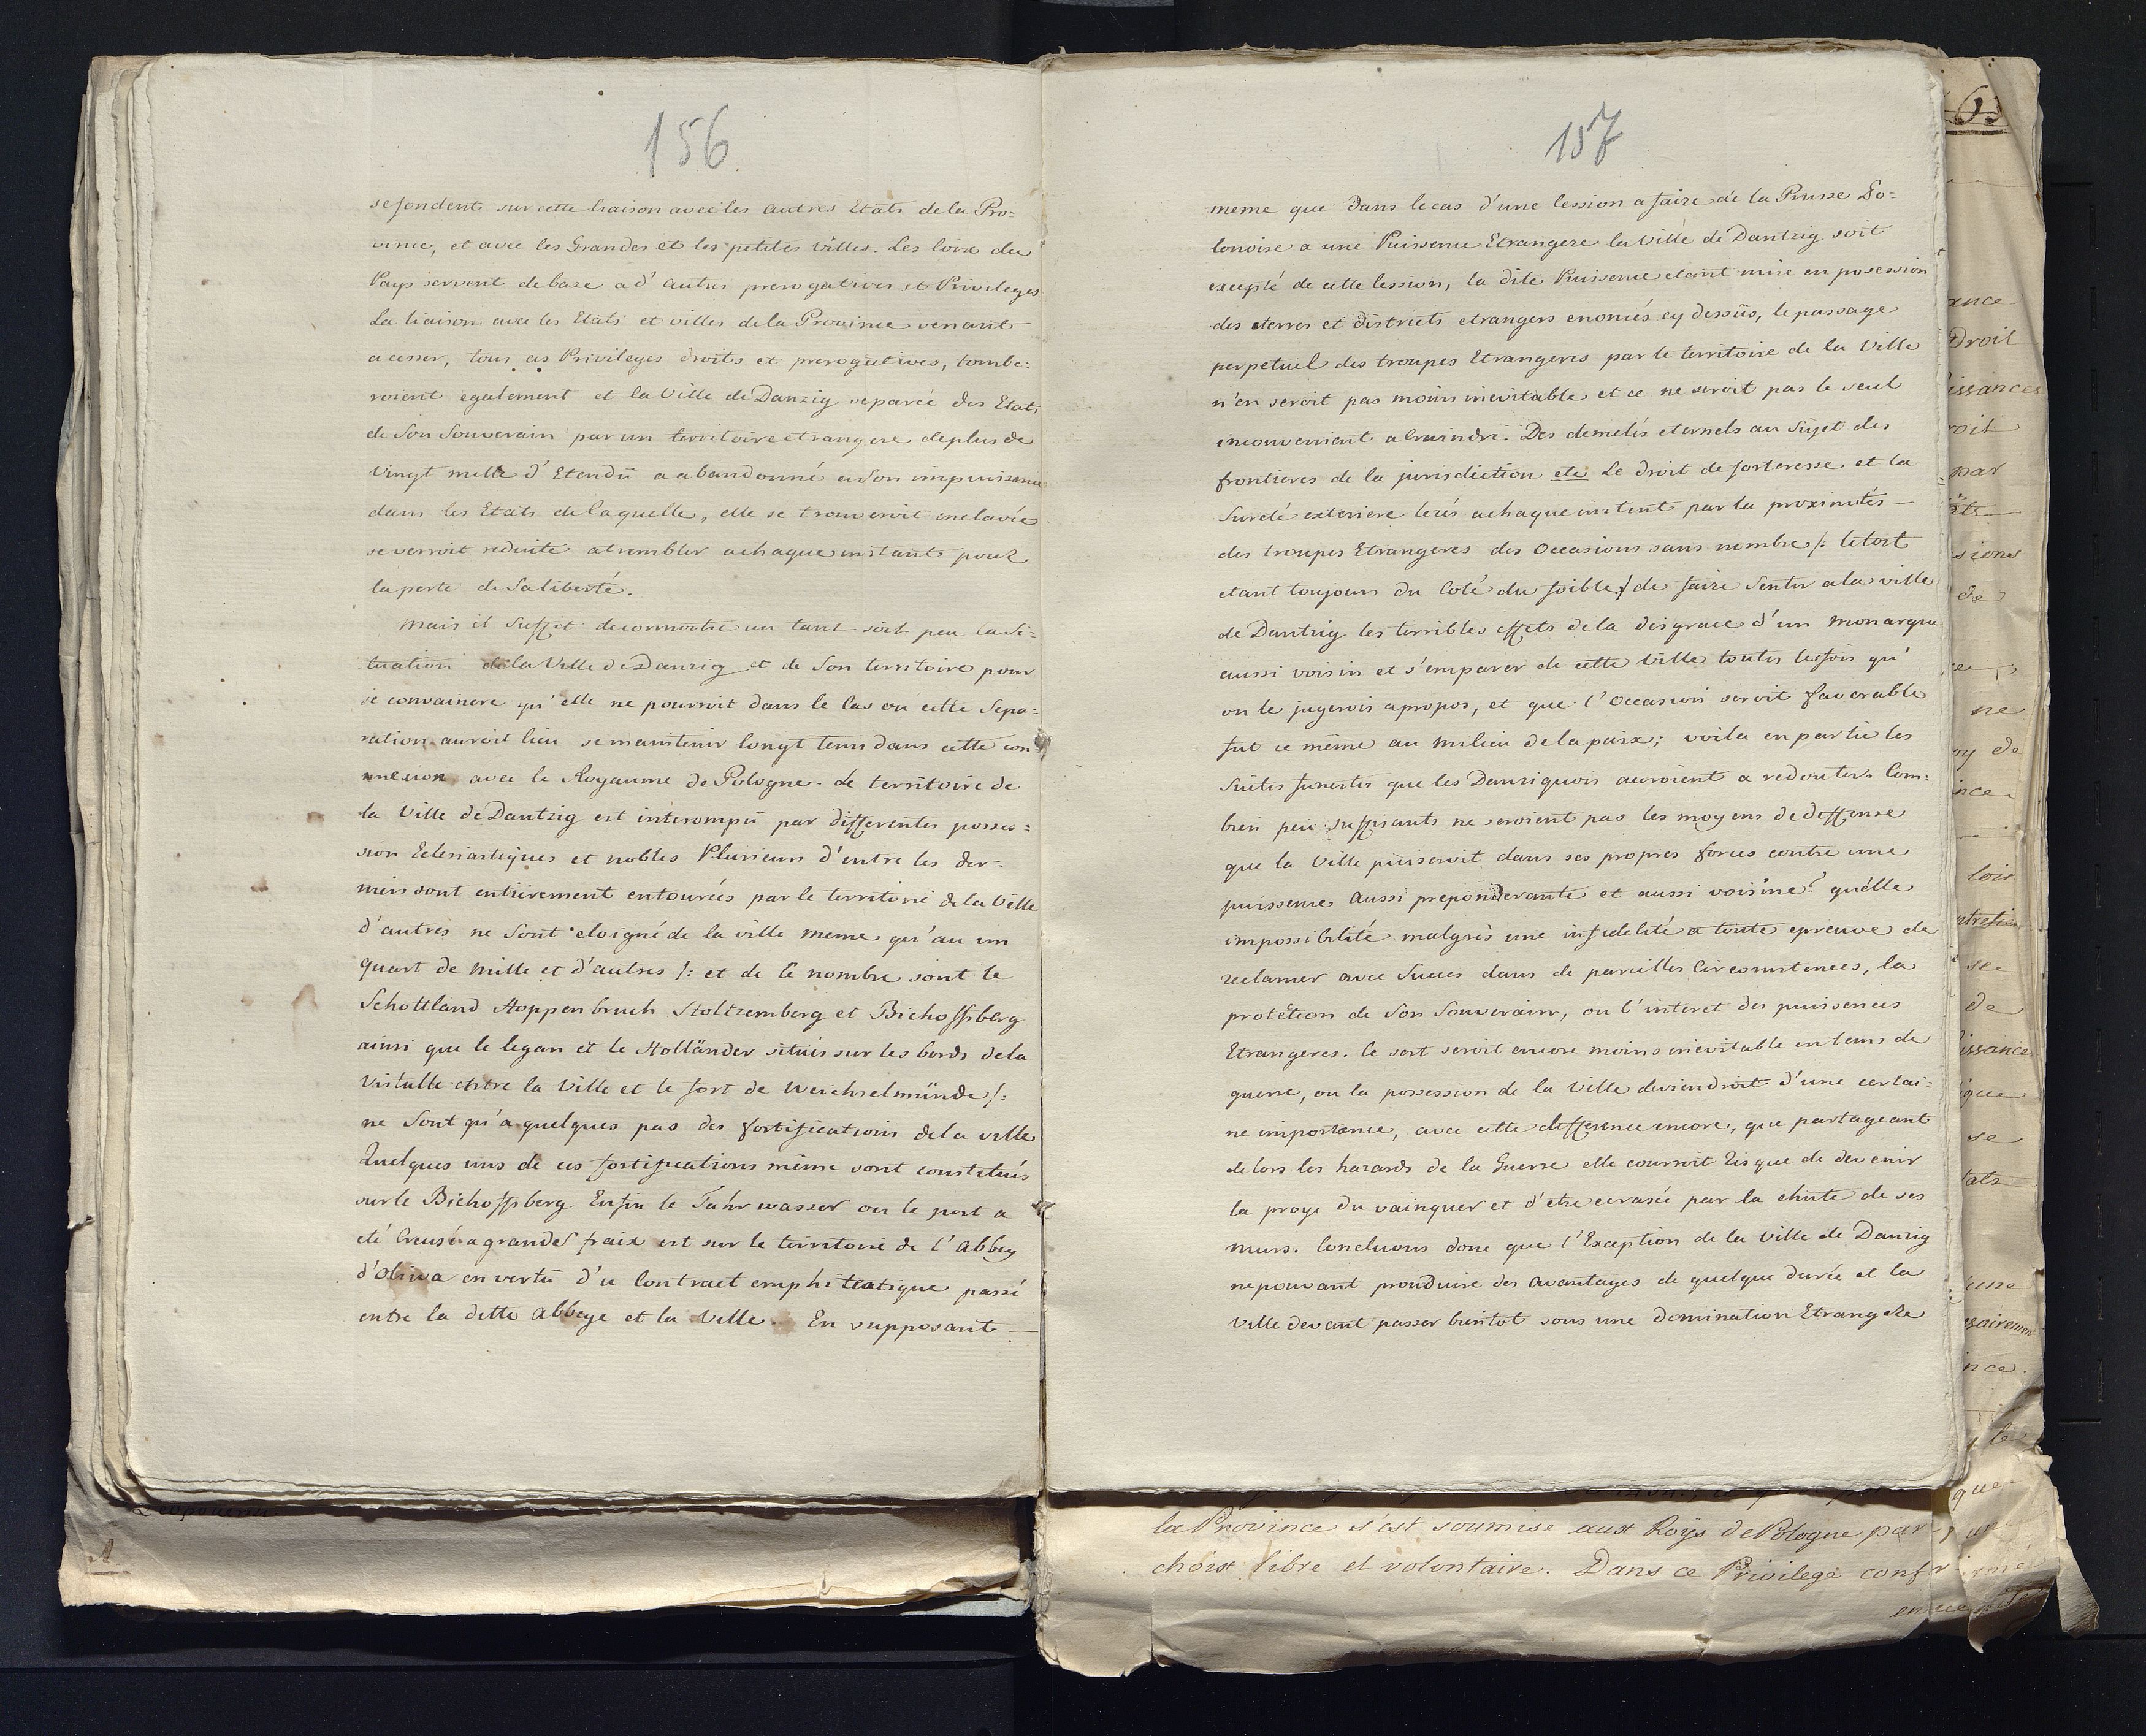 156
se fondent sur cette liaison avec les autres Etats de la Pro=
vince, et avec les Grandes et les petites Villes. Les loix du
Pays servent de baze a d'autres prerogatives et Privileges
La liaison avec les Etats et villes de la Province venant
a cesser, tous ces Privileges droits et prerogatives, tombe=
roient egalement et la Ville de Danzig separée des Etats
de Son Souverain par un territoire etrangere de plus de
Vingt mille d'Etendü a abandonné a Son impuissance
dans les Etats de laquelle, elle se trouveroit enclavée
se verroit reduite a trembler a chaque instant pour
la perte de Sa liberté.
Mais il Suffit de connoitre un tant soit peu la Si=
tuation de la Ville de Danzig et de Son territoire pour
se convaincre qu'elle ne pourroit dans le Cas ou cette Sepa=
ration auroit lieu se maintenir longt tems dans cette con=
nnexion avec le Royaume de Pologne. Le territoire de
la Ville de Dantzig est interompü par differentes posses=
sion Eclesiastiques et nobles Plusieurs d'entre les der=
niers sont entierement entourées par le territoire de la Ville
d'autres ne Sont eloigné de la ville meme qu'au un
quart de mille et d'autres /: et de Ce nombre sont le
Schottland Hoppenbruch Stoltzemberg et Bichoffsberg
ainsi que le legan et le Holländer situés sur les bords de la
Vistulle entre la Ville et le fort de Weichselmünde /:
ne Sont qu'a quelques pas des fortifications de la ville
Quelques uns de ces fortifications même sont constitués
sur le Bichoffsberg. Enfin le Fahrwasser ou le port a
été Creusé a grandes fraix est sur le territoire de l'Abbey
d'Oliwa en vertü d'u Contract emphiteatique passé
entre la ditte Abbaye et la Ville. En supposant
157
meme que dans le cas d'une Cession a faire de la Prusse Po=
lonoise a une Puissence Etrangere la Ville de Dantzig soit
excepté de cette Cession, la dite Puissence etant mise en posession
des terres et districts etrangers enoncés cy dessüs, le passage
perpetuel des troupes Etrangeres par le territoire de la Ville
n'en seroit pas moins inevitable et ce ne seroit pas le seul
inconvenient a Craindre. Des demelés eternels au Sujet des
frontieres de la jurisdiction etc Le droit de forteresse et la
Sureté exteriere lezés a chaque instent par la proximités
des troupes Etrangeres des Occasions sans nombre /: le tort
etant toujours du Coté du foible / de faire Sentir a la ville
de Dantzig les terribles effets de la disgrace d'un monarque
aussi voisin et s'emparer de cette Ville toutes les fois qu'
on le jugerois apropos, et que l'Occasion seroit favorable
fut ce même au milieu de la paix; voila en partie les
Suites funestes que les Danziquois auroient a redouter. Com=
bien peu suffisants ne seroient pas les moyens de deffense
que la Ville püiseroit dans ses propres forces contre une
puissence aussi preponderante et aussi voisine? quélle
impossibilité malgrès une infidelité a toute epreuve de
reclamer avec Succes dans de pareilles Circomstences, la
protétion de Son Souverain, ou l'interet des puissences
Etrangeres. Ce sort seroit encore moins inevitable en tems de
guerre, ou la possession de la Ville deviendroit d'une certai=
ne importance, avec cette difference encore, que partageant
de lors les hazards de la Guerre elle courroit risque de devenir
la proye du vainquer et d'etre ecrasée par la chute de ses
murs. Concluons donc que l'Exception de la Ville de Danzig
ne pouvant prouduire des avantages de quelque durée et la
Ville devant passer bientot sous une domination Etrangere
la Province s'est soumise aux Roys de Pologne par
choix libre et volontaire. Dans ce Privilege confr